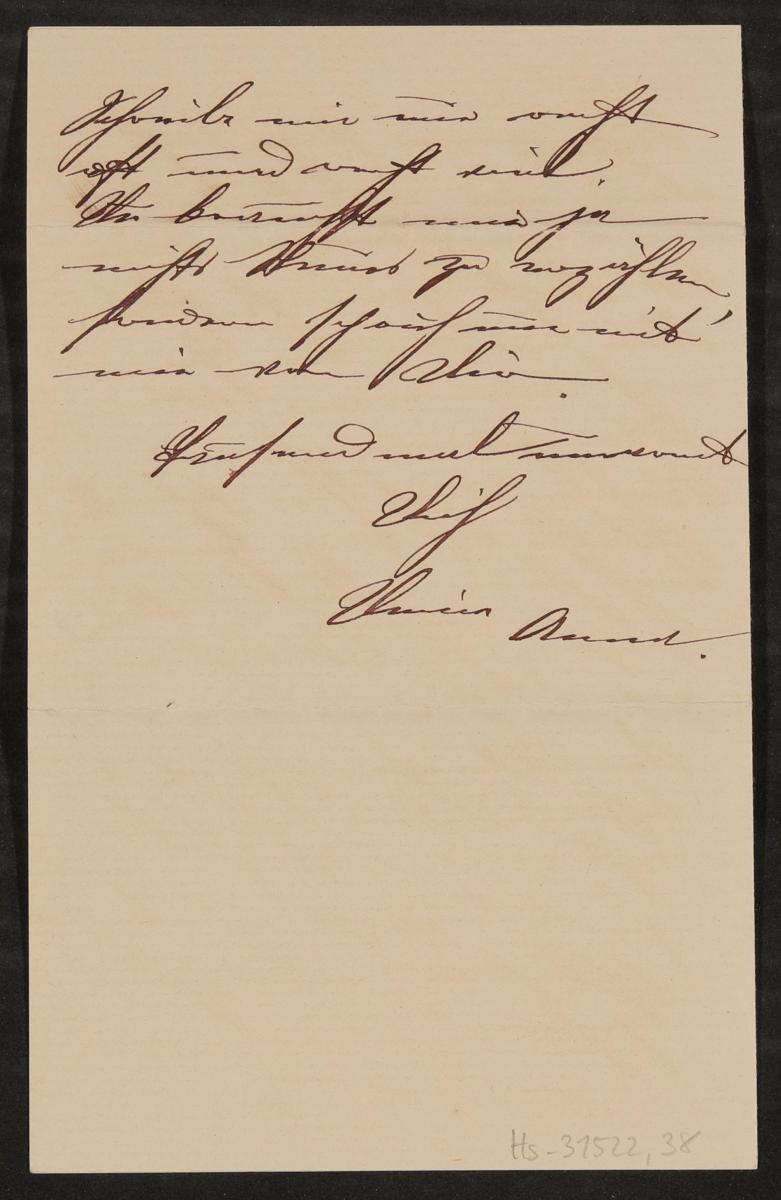 Schreibe mir nur recht
oft und recht viel.
Du brauchst mir ja
nichts Neues zu erzählen,
sondern schreib nur
mir von Dir.
Grüßend und umarmt
Dich
Deine Anna.
Hs-31522, 38